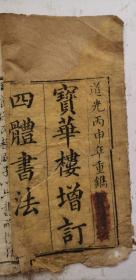 道光丙申年重鐫
寶華樓增訂
四體書法